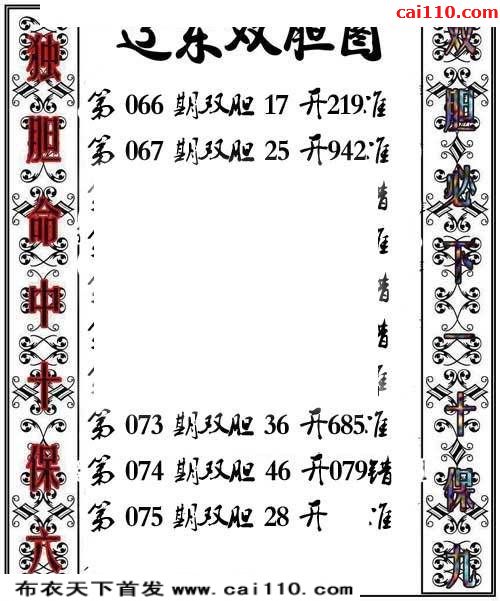 cai110.com
辽东双胆图
独胆命中十保六
第 066 期双胆 17 开219准
第 067 期双胆 25 开942准
错
准
错
错
准
第 073 期双胆 36 开685准
第 074 期双胆 46 开079错
第 075 期双胆 28 开 准
双胆必下一十保九
布衣天下首发 www.cai110.com